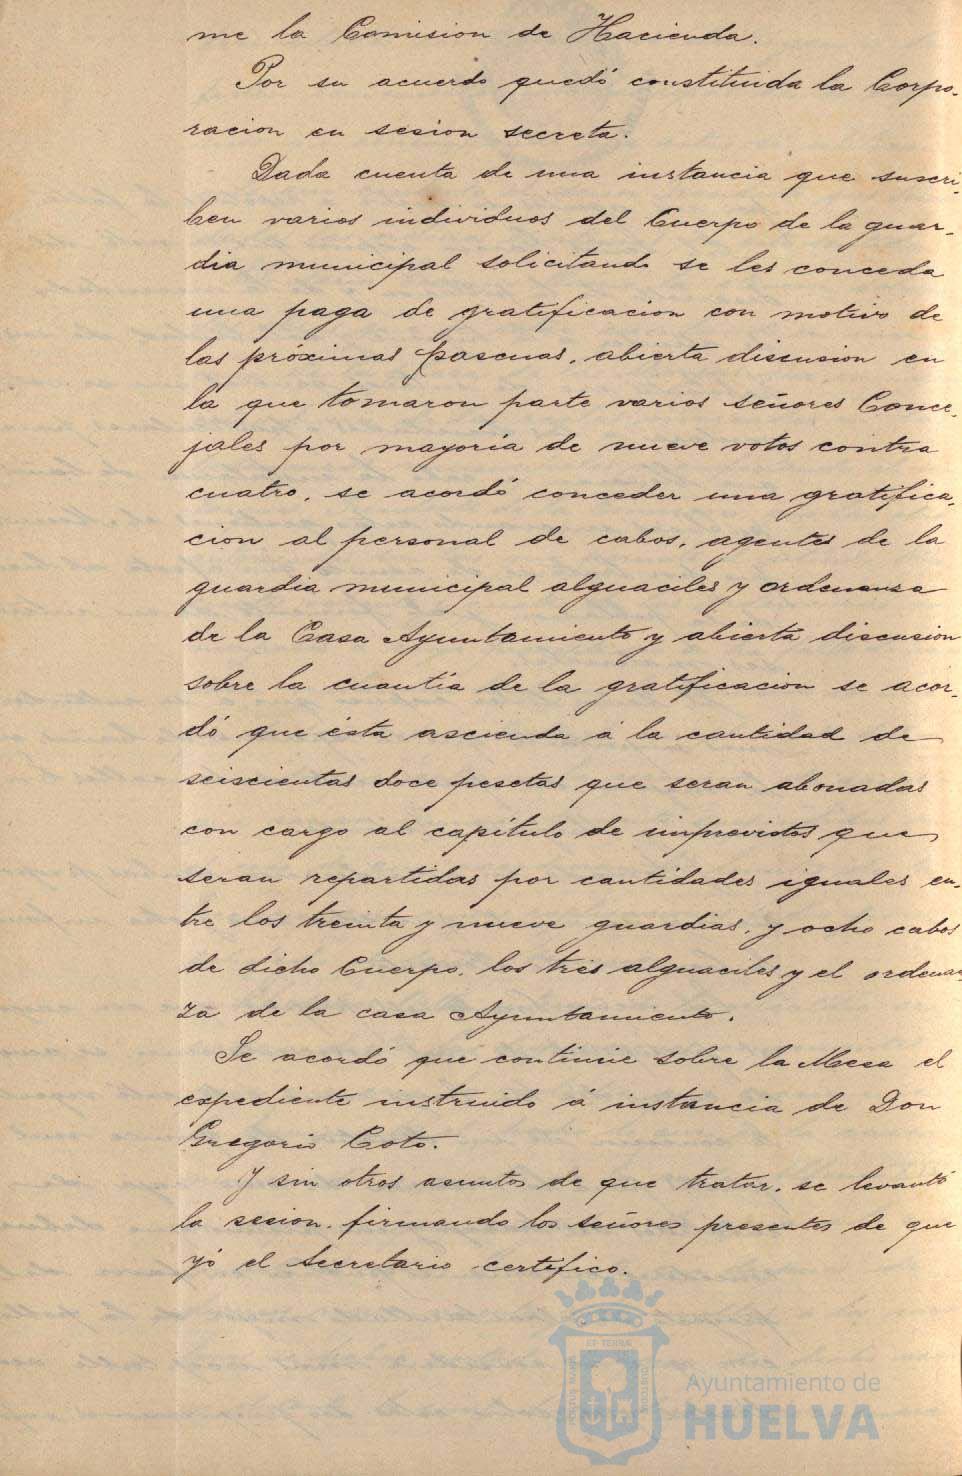 me la Comision de Hacienda.
Por su acuerdo quedó constituida la Corpo-
racion en sesion secreta.
Dada cuenta de una instancia que suscri-
ben varios individuos del Cuerpo de la guar-
dia municipal solicitando se les conceda
una paga de gratificacion con motivo de
las próximas pascuas, abierta discusion en
la que tomaron parte varios señores Conce-
jales por mayoría de nueve votos contra
cuatro, se acordó conceder una gratifica-
cion al personal de cabos, agentes de la
guardia municipal alguaciles y ordenanza
de la Casa Ayuntamiento y abierta discusion
sobre la cuantía de la gratificacion se acor-
dó que ésta ascienda á la cantidad de
seiscientas doce pesetas que seran abonadas
con cargo al capítulo de imprevistos que
seran repartidas por cantidades iguales en-
tre los treinta y nueve guardias, y ocho cabos
de dicho Cuerpo, los tres alguaciles y el ordenan-
za de la casa Ayuntamiento.
Se acordó que continúe sobre la Mesa el
expediente instruido á instancia de Don
Gregorio Coto.
Y sin otros asuntos de que tratar, se levantó
la sesion, firmando los señores presentes de que
yó el Secretario certifico.
Ayuntamiento de
HUELVA